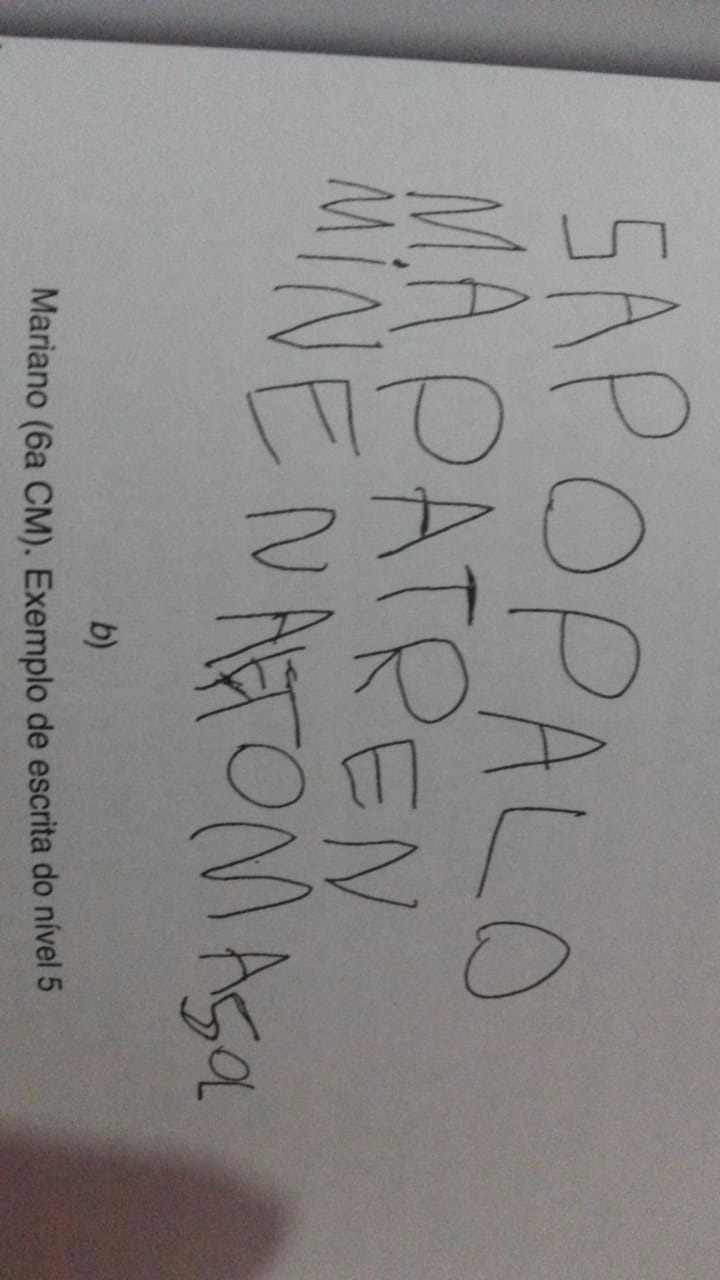 SAPOPALO
MAPATREN
MINENATOMASOL
b)
Mariano (6a CM). Exemplo de escrita do nível 5